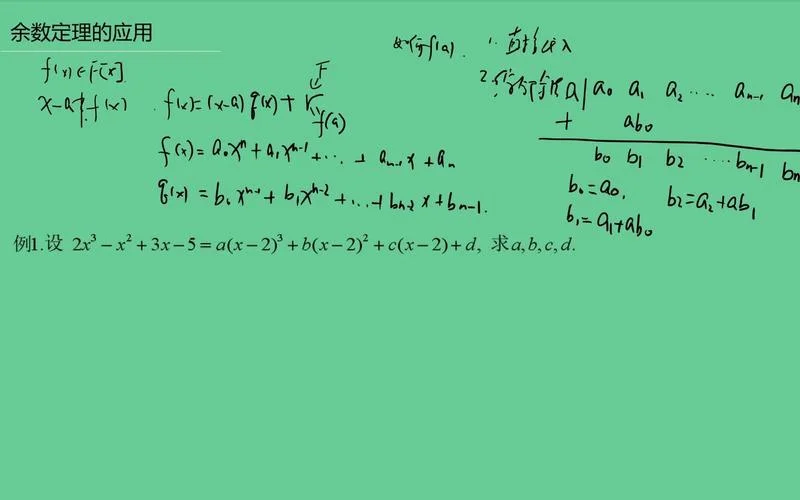 余数定理的应用
f(x)∈F[x]
x-a f(x)
f(x)=(x-a)q(x)+r
F
f(a)
f(x)=a₀xⁿ+a₁xⁿ⁻¹+…+aₙ₋₁x+aₙ
q(x)=b₀xⁿ⁻¹+b₁xⁿ⁻²+…+bₙ₋₂x+bₙ₋₁.
f(a).
1. 直接代入
2. a| a₀ a₁ a₂ …. aₙ₋₁ aₙ
+ ab₀
b₀ b₁ b₂ …. bₙ₋₁ bₙ
b₀=a₀,
b₂=a₂+ab₁
b₁=a₁+ab₀
例1.设 2x³-x²+3x-5=a(x-2)³+b(x-2)²+c(x-2)+d, 求a,b,c,d.